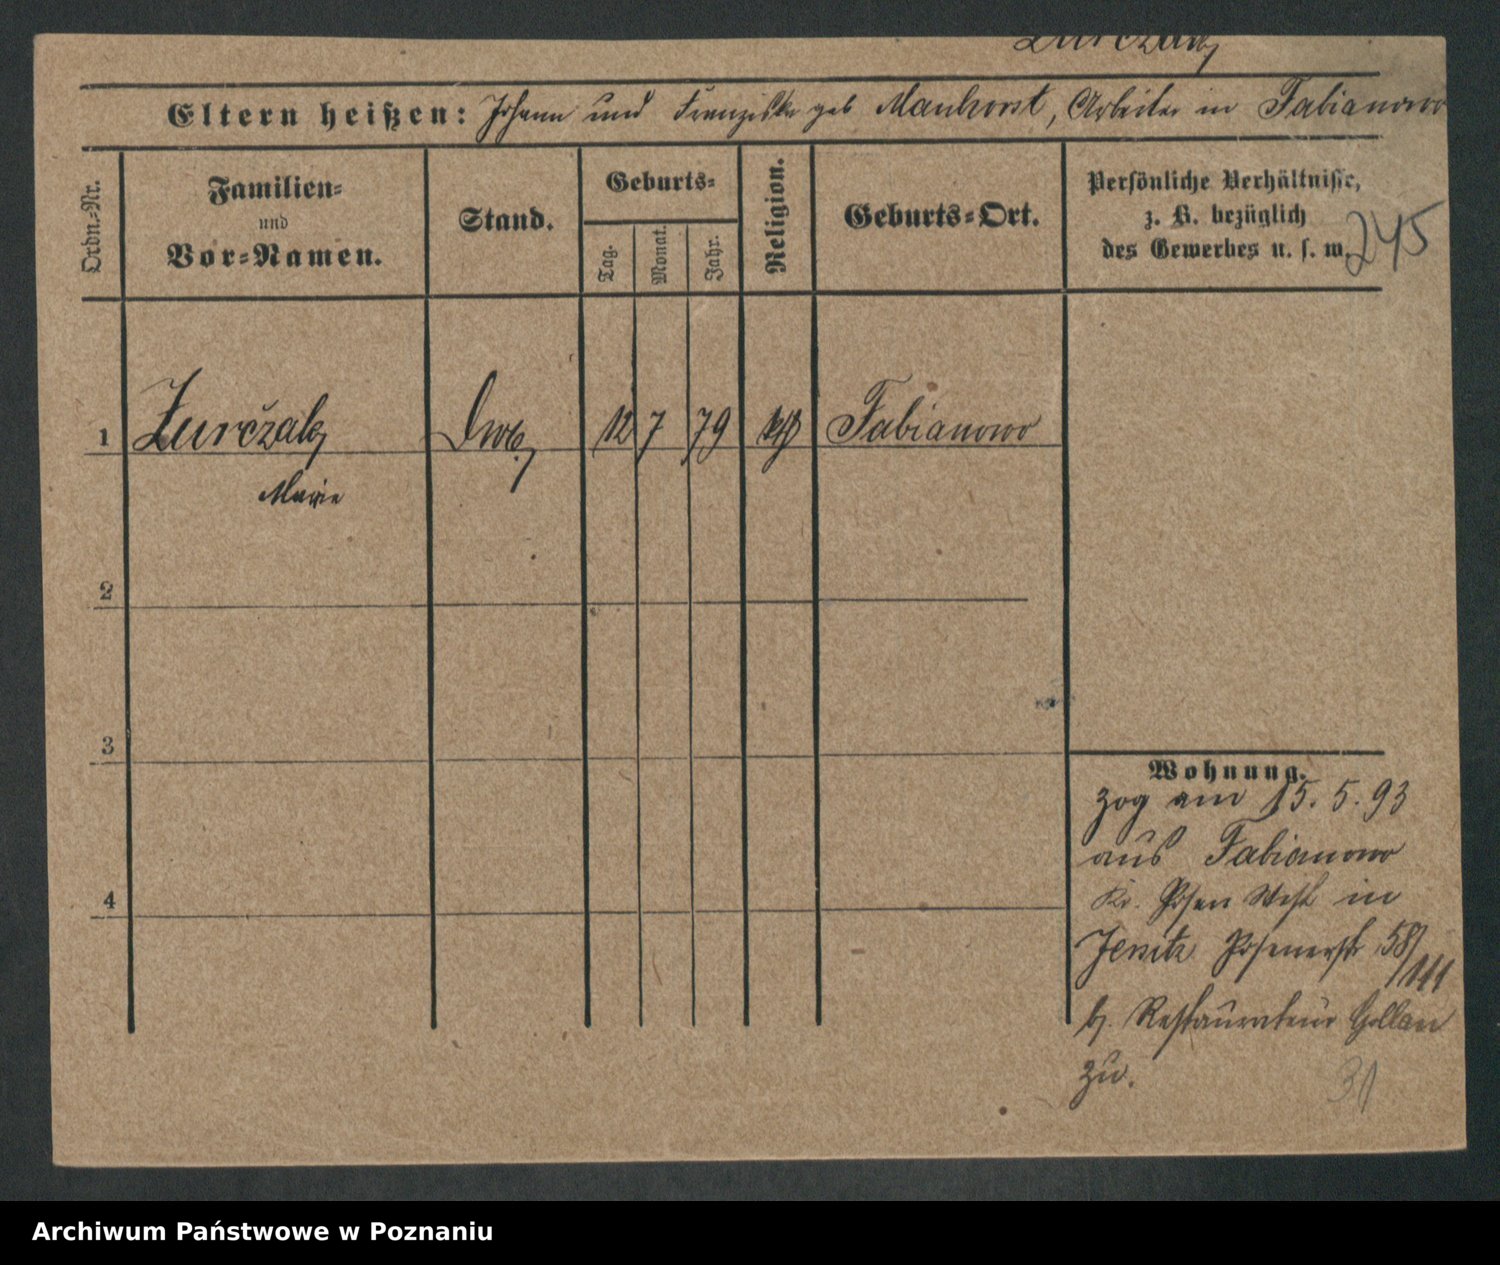 Zurczak
Eltern heißen: Johann und Franziska geb Manhorst, Arbeiter in Fabianowo
Ordn.=Nr.
Familien=
und
Vor=Namen.
Stand.
Geburts=
Tag.
Monat.
Jahr.
Religion.
Geburts=Ort.
Persönliche Verhältnisse,
z. B. bezüglich
des Gewerbes u. s. w.
245
1 Zurczak 12 7 79 kth Fabianowo
Marie
2
3
4
Wohnung.
zog am 15. 5. 93
aus Fabianowo
Kr. Posen West in
Jersitz Posenerstr 58/
111
b. Restaurateur Gollan
zu.
31
Archiwum Państwowe w Poznaniu